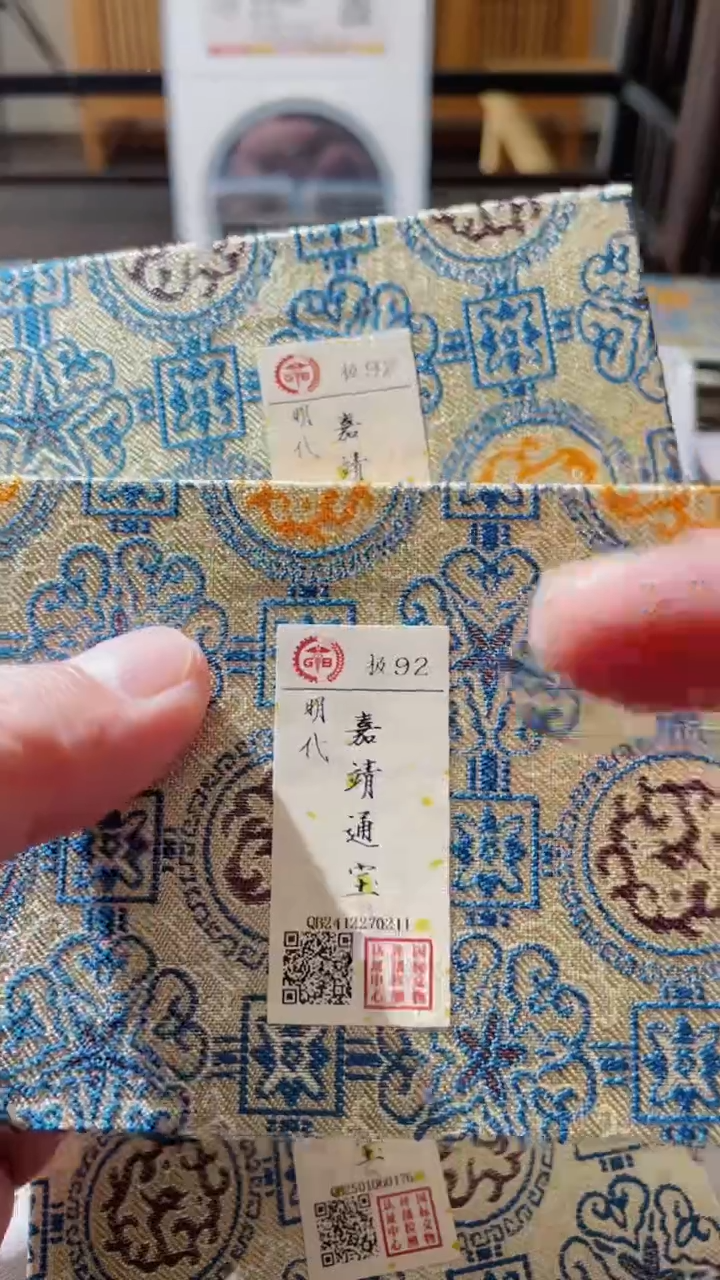 GB 极92
明代
嘉靖
GB 极92
明代
嘉靖通宝
QB2412270211
国标文物
评测检测
认证中心
QB2501060176
国标文物
认证中心